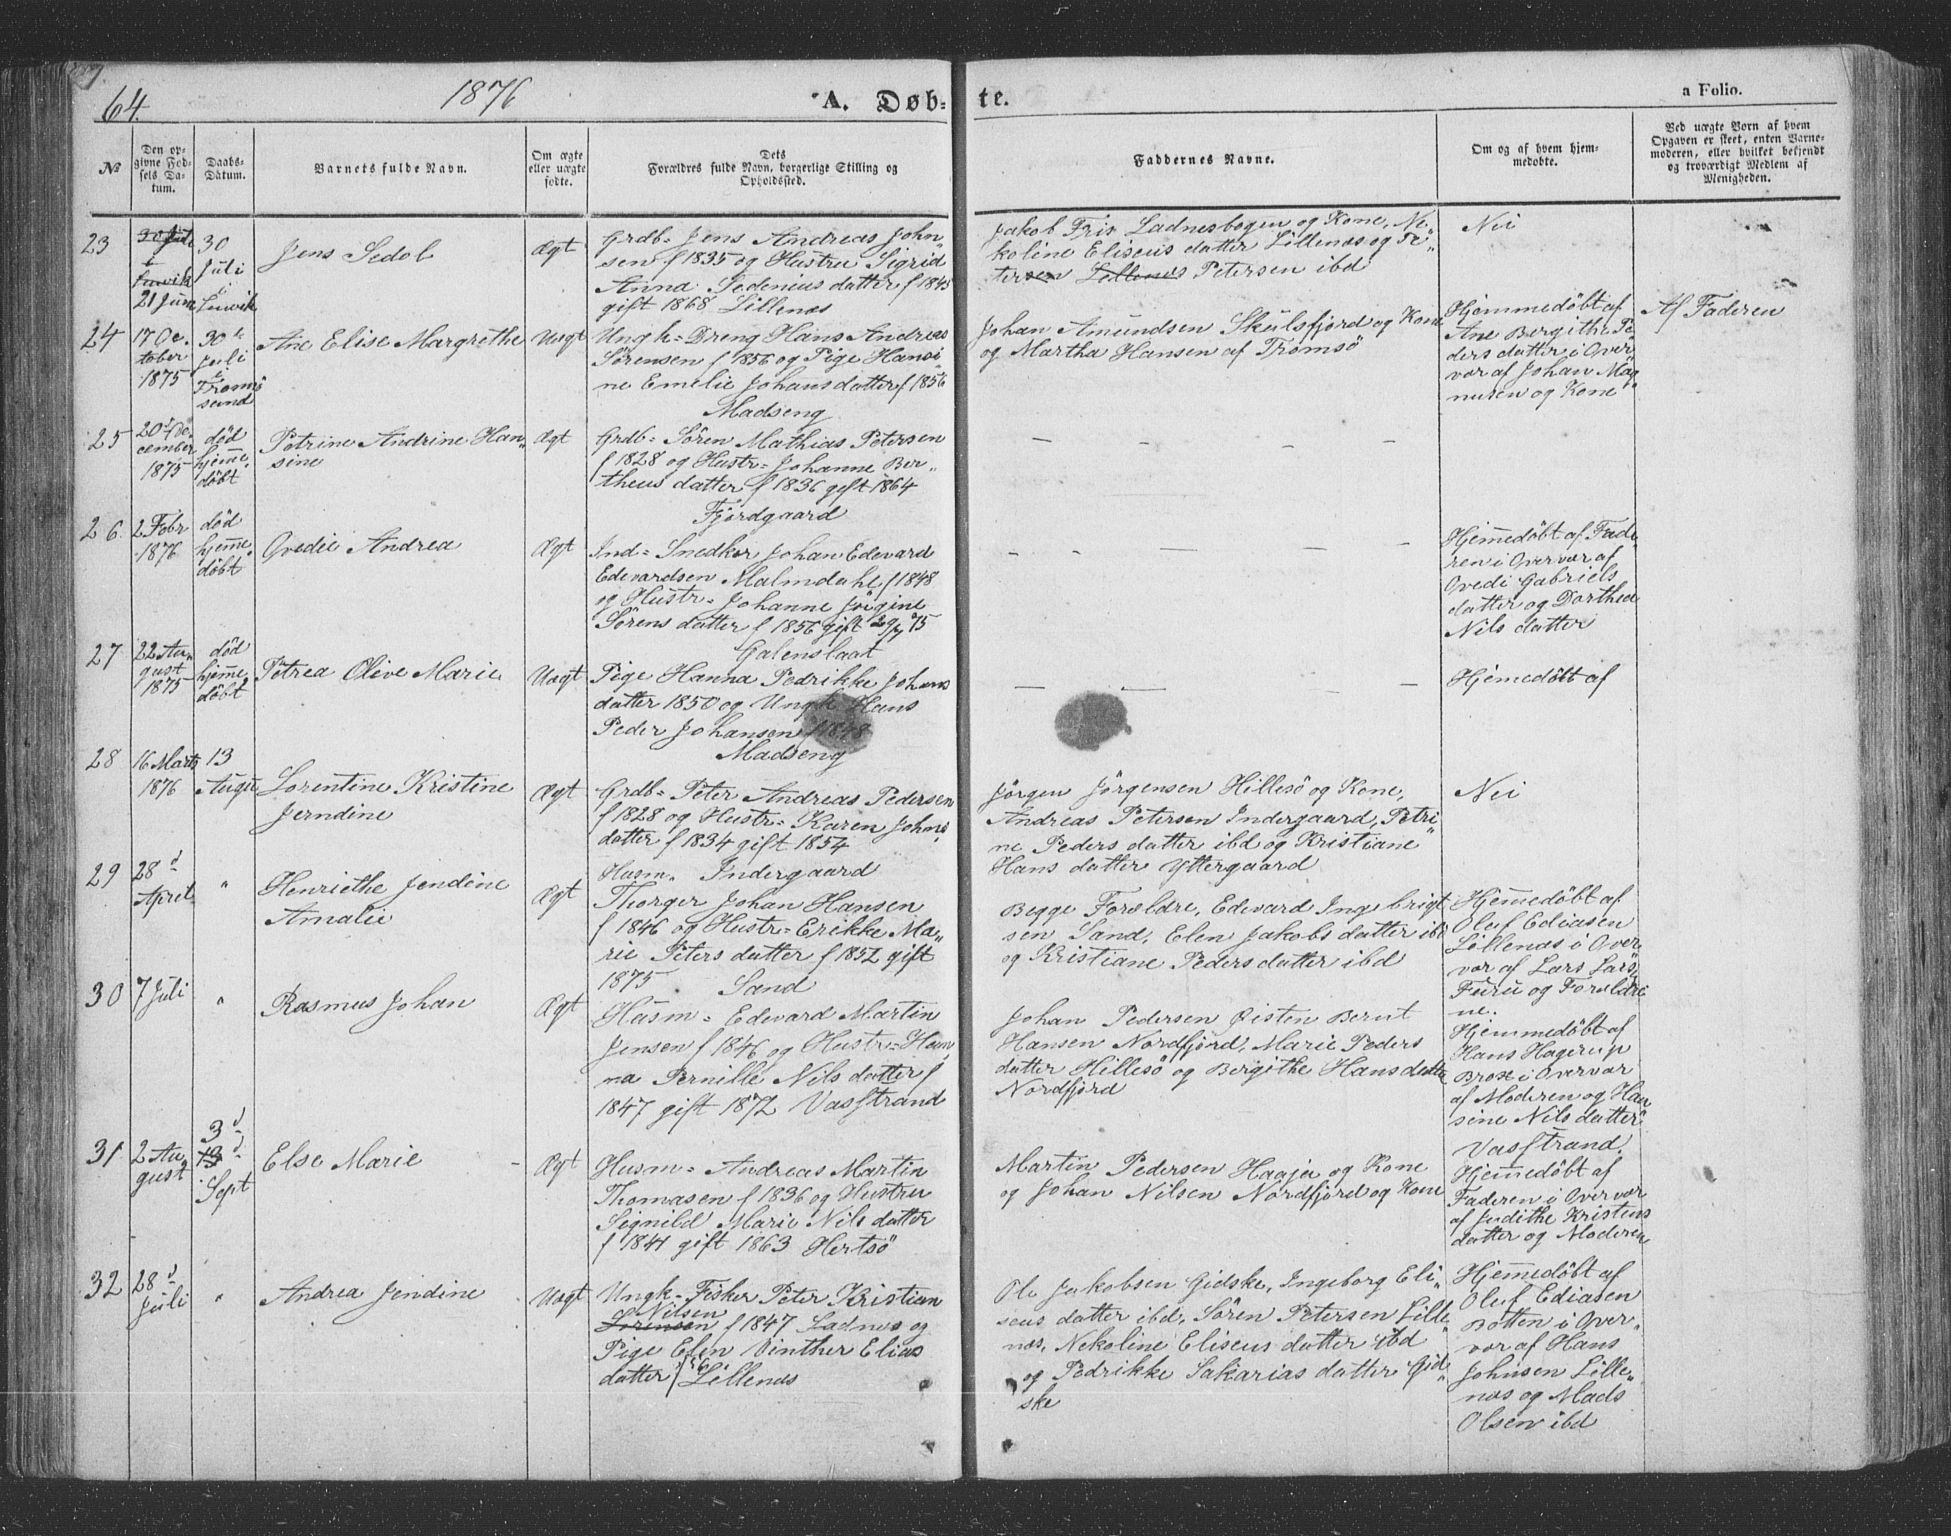 64.
1876
A. Døb-
te.
a Folio.
№
Den op-
givne Fød-
sels Da-
tum.
Daabs-
Datum.
Barnets fulde Navn.
Om ægte
eller uægte
fødte.
Dets
Forældres fulde Navn, borgerlige Stilling og
Opholdssted.
Faddernes Navne.
Om og af hvem hjem-
medøbte.
Ved uægte Børn af hvem
Opgaven er skeet, enten Barne-
moderen, eller hvilket bekjendt
og troværdigt Medlem af
Menigheden.
23
21 Juni
30
Juli
Jens Sedol
Ægt
Grdb- Jens Andreas John-
sen f 1835 og Hustru Sigrid
Anna Sedenius datter f 1845
gift 1868 Lillenæs
Jakob Friv Ladnesbogen og Kone, Ne-
koline Eliseus datter Lillenæs og Pe-
tersen Lillenæs Petersen ibd
Nei
24
17 Oc-
tober
1875
30te
Juli
i
Troms-
sund
Ane Elise Margrethe
Uægt
Ungk- Dreng Hans Andreas
Sörensen f 1856 og Pige Hansi-
ne Emelie Johans datter f 1856
Madseng
Johan Amundsen Skulsfjord og Kone
og Martha Hansen af Tromsö
Hjemmedöbt af
Ane Bergithe Pe-
ders datter i Over-
vær af Johan Mag-
nusen og Kone
Af Faderen
25
20 De-
cember
1875
död
hjeme-
döbt
Petrine Andrine Han-
sine
Ægt
Grdb- Sören Mathias Petersen
f 1828 og Hustr- Johanne Ber-
theus datter f 1836 gift 1864
Fjordgaard
26
2 Febr
1876
död
hjeme-
döbt
Gvedie Andrea
Ægt
Ind- Snedker Johan Edevard
Edevardsen Malmdahl f 1848
og Hustr- Johanne Jörgine
Sörens datter f 1856 gift 29/7 75
Galenslaat
Hjemedöbt af Fade-
ren i Overvær af
Gvedi Gabriels
datter og Dorthea
Nils datter
27
22 Au-
gust
1875
död
hjeme-
döbt
Petrea Olive Marie
Uægt
Pige Hanna Pedrikke Johans
datter 1850 og Ungk Hans
Peder Johansen f 1848
Madseng
Hjemedöbt af
28
16 Marts
1876
13
August
Lorentine Kristine
Jerndine
Ægt
Grdb- Peter Andreas Pedersen
f 1828 og Hustr- Karen Johns
datter f 1834 gift 1854
Indergaard
Jörgen Jörgensen Hillesö og Kone,
Andreas Petersen Indergaard, Petri-
ne Peders datter ibd og Kristiane
Hans datter Yttergaard
Nei
29
28d
April
"
Henriethe Jendine
Amalie
Ægt
Husm-
Thorger Johan Hansen
f 1846 og Hustr- Erikke Ma-
rie Peters datter f 1852 gift
1875 Sand
Begge Forældre, Edevard Inge brigt
sen Sand, Elen Jakobs datter ibd
og Kristiane Peders datter ibd
Hjemedöbt af
Oluf Ediasen
Lillenæs i Over-
vær af Lars Lars,
Furu og Forældre
ne.
30
7 Juli
"
Rasmus Johan
Ægt
Husm- Edevard Martin
Jensen f 1846 og Hustr- Han-
na Pernille Nils datter f
1847 gift 1872 Vasstrand
Johan Pedersen Øisten Berut
Hansen Nordfjord, Marie Peders
datter Hillesö og Bergithe Hans datter
Nordfjord
Hjemmedöbt af
Hans Hagerup
Brox i Overvær
af Moderen og Han
sine Nils datter
Vasstrand.
31
2 Au-
gust
3d
13d
Sept
Else Marie
Ægt
Husm- Andreas Martin
Thomasen f 1836 og Hustru
Signild Marie Nils datter
f 1841 gift 1863 Hertsö
Martin Pedersen Haaja og Kone
og Johan Nilsen Nordfjord og Kone
Hjemedöbt af
Faderen i Overvær
af Judithe Kristens
datter og Moderen
32
28d
Juli
"
Andrea Jendine
Uægt
Ungk- Fisker Peter Kristian
Nilsen
Sörensen f 1847 Ladnæs og
Pige Elen Vinther Elias
datter f 56 Lillenæs
Ole Jakobsen Gidske, Ingeborg Eli-
seus datter ibd, Sören Petersen Lille-
næs, Nekoline Eliseus datter ibd
og Pedrikke Sakarias datter Gid-
ske
Hjemedöbt af
Oluf Ediasen
Botten i Over-
vær af Hans
Johnsen Lille-
næs og Mads
Olsen ibd